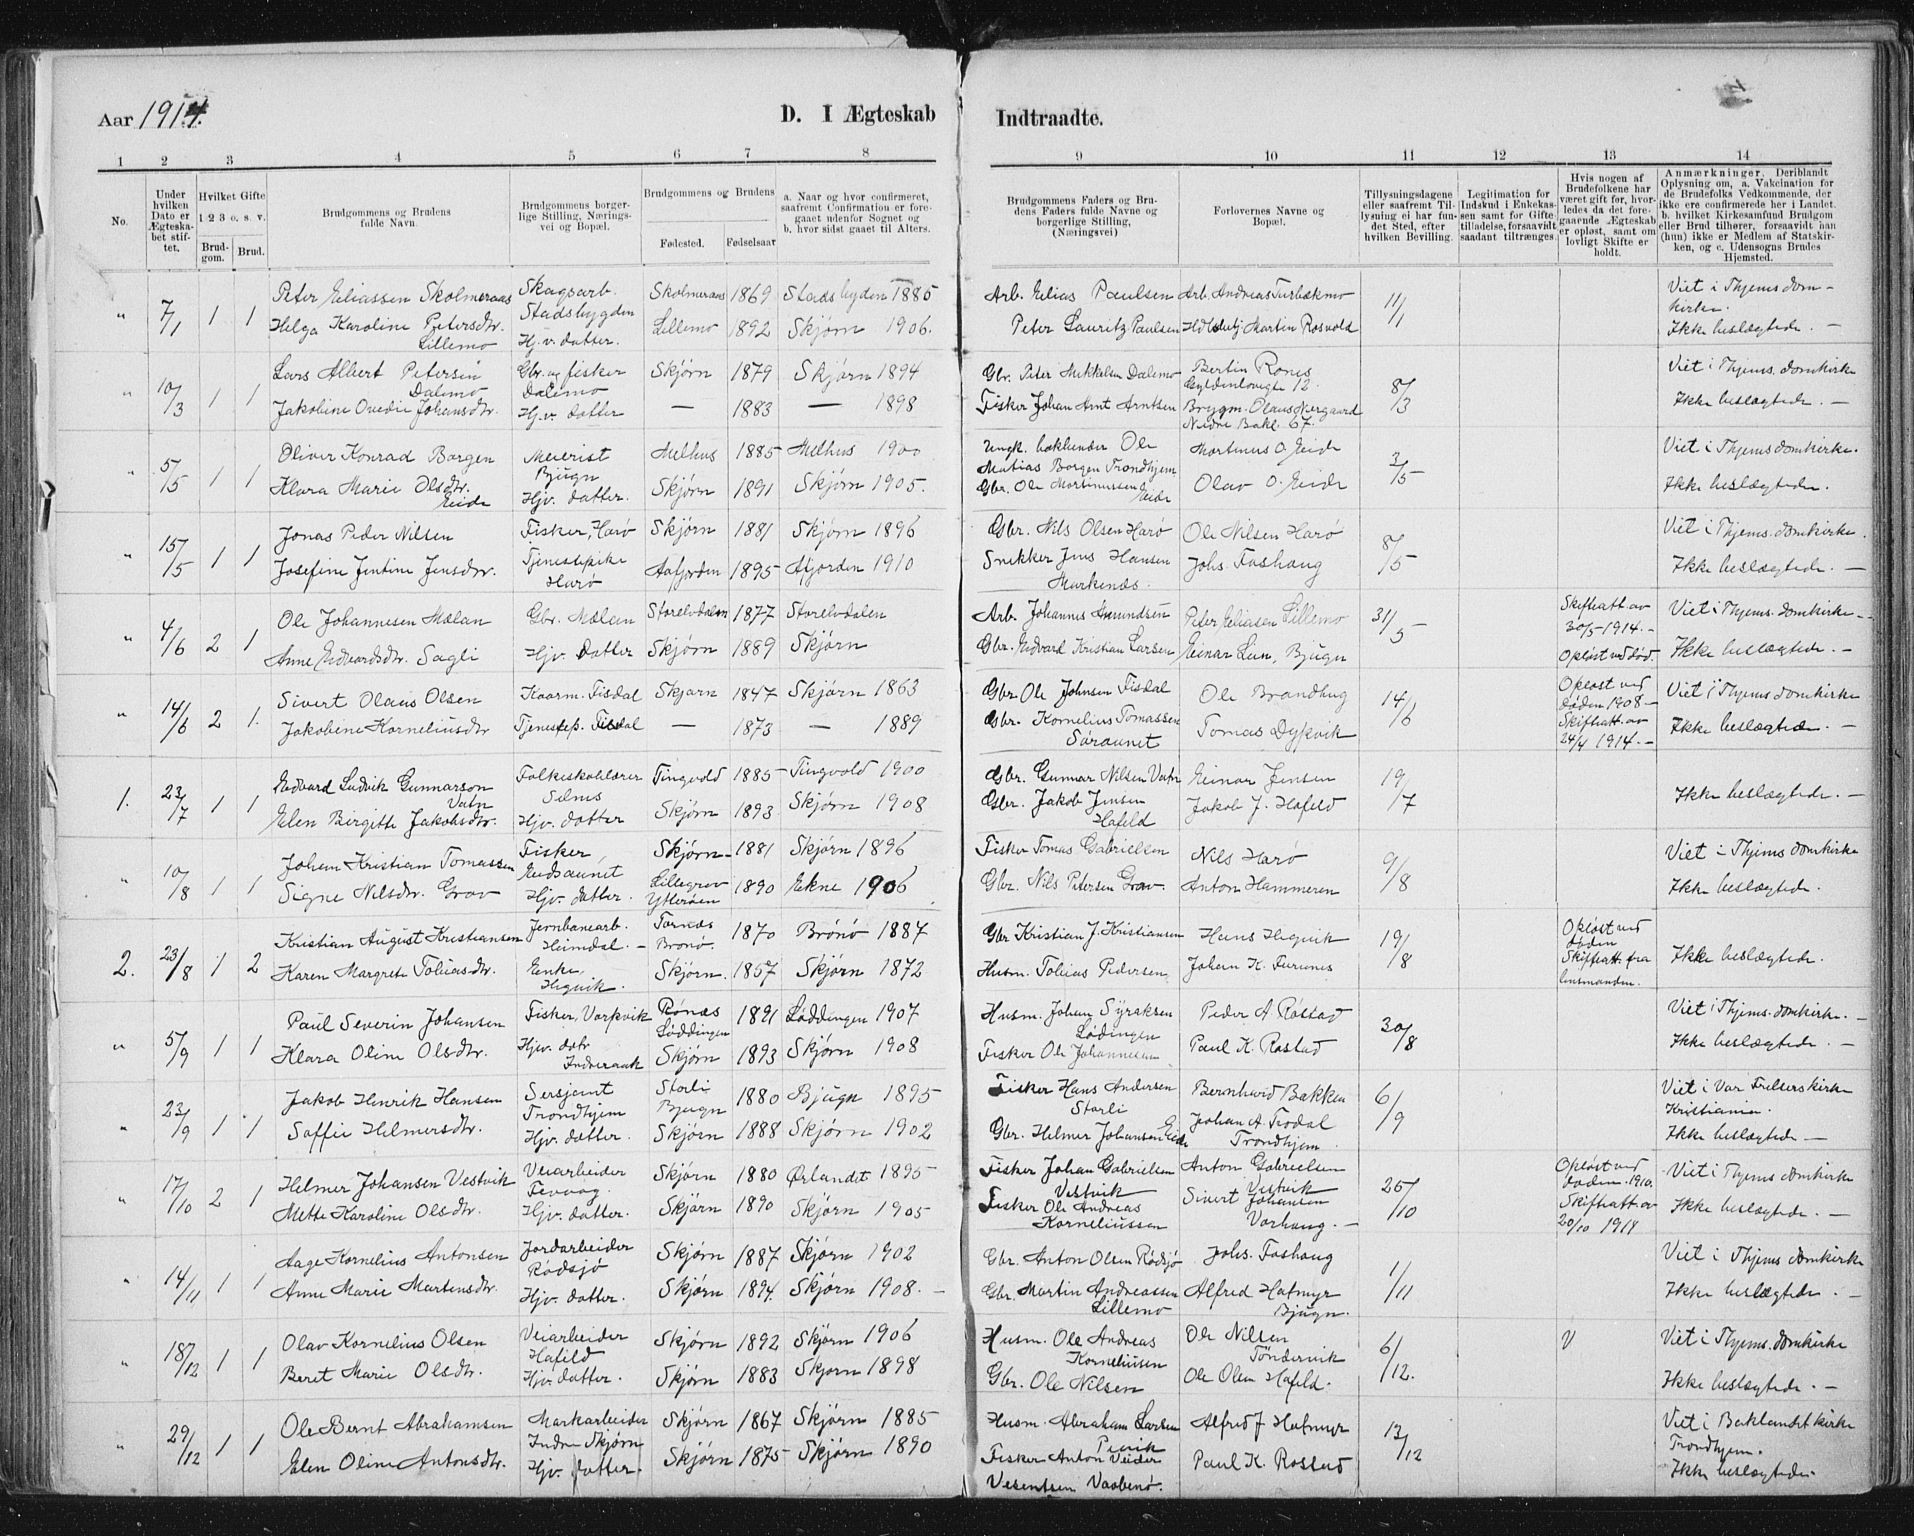 Aar 1914.
D. I Ægteskab Indtraadte.
1 2 3 4 5 6 7 8 9 10 11 12 13 14
No.
Under hvilken Dato er Ægteskabet stiftet.
Hvilket Gifte 1 2 3 o. s. v.
Brudgom. Brud.
Brudgommens og Brudens fulde Navn.
Brudgommens borgerlige Stilling, Næringsvei og Bopæl.
Brudgommens og Brudens
Fødested. Fødselsaar
a. Naar og hvor confirmeret, saafremt Confirmation er foregaaet udenfor Sognet og b. hvor sidst gaaet til Alters.
Brudgommens Faders og Brudens Faders fulde Navne og borgerlige Stilling, (Næringsvei)
Forlovernes Navne og Bopæl.
Tillysningsdagene eller saafremt Tillysning ei har fundet Sted, efter hvilken Bevilling.
Legitimation for Indskud i Enkekassen samt for Giftetilladelse, forsaavidt saadant tiltrænges.
Hvis nogen af Brudefolkene har været gift før, hvorledes da det foregaarnde Ægteskab er opløst, samt om lovligt Skifte er holdt.
Anmærkninger. Deriblandt Oplysning om, a. Vakcination for de Brudefolks Vedkommende, der ikke ere confirmerede her i Landet. b. hvilket Kirkesamfund Brudgom eller Brud tilhører, forsaavidt han (hun) ikke er Medlem af Statskirken, og c. Udensogns Brudes Hjemsted.
" 7/1 1 1 Peter Eliassen Skolmeraas Skogsarb. Stadsbygden Skolmeraas 1869 Stadsbygden 1885 Arb. Elias Paulsen Arb. Andreas Turbækmo 11/1 Viet i Thjems domkirke.
Helga Karoline Petersdtr. Lillemo Hj.v. datter. Lillemo 1892 Skjørn 1906. Peter Lauritz Paulsen Martin Rosvold Ikke beslægtede. —
" 10/3 1 1 Lars Albert Petersen Dalemo Gbr. og fisker Dalemo Skjørn 1879 Skjørn 1894 Gbr. Peter Mikkelsen Dalemo Bertin Rones Gyldenløvesgte 12. 8/3 Viet i Thjems. domkirke
Jakoline Ovedie Johansdtr. Hj.v. datter — 1883 — 1898 Fisker Johan Arnt Arntsen Brygm. Olaus Nergaard Nedre Bakl. 67. Ikke beslægtede. —
" 5/5 1 1 Oliver Konrad Borgen Meierist Bjugn Melhus 1885 Melhus 1900 Ole Matias Borgen Trondhjem Martinus O. Eide 3/5 Viet i Thjems domkirke.
Klara Marie Olsdtr. Eide Hjv. datter. Skjørn 1891 Skjørn 1905. Gbr. Ole Martinussen Eide Olav O. Eide Ikke beslægtede.
" 15/5 1 1 Jonas Peder Nilsen Fisker, Harø Skjørn 1881 Skjørn 1896 Gbr. Nils Olsen Harø Ole Nilsen Harø 8/5 Viet i Thjems. domkirke.
Josefine Jentine Jensdtr. Tjenestpike Harø Aafjorden 1895 Afjorden 1910 Snekker Jens Hansen Markenæs. Johs. Fashaug Ikke beslægtede. —
" 4/6 2 1 Ole Johannesen Mælan Gbr. Mælan Storelvdalen 1877 Storelvdalen Arb. Johannes Amundsen Peter Eliasen Lillemo 31/5 Skifteatt. av 30/5-1914. — Opløst ved død. Viet i Thjems. domkirke. —
Anne Edvardsdtr. Sagli Hjv. datter Skjørn 1889 Skjørn Gbr. Edvard Kristian Larsen Einar Lien, Bjugn Ikke beslægtede. —
" 14/6 2 1. Sivert Olaus Olsen Kaarm. Fisdal Skjørn 1847 Skjørn 1863 Gbr. Ole Johnsen Fisdal Ole Brandhug 14/6 Opløst ved døden 1908 — Skifteatt. av 24/4 1914. — Viet i Thjems domkirke
Jakobine Korneliusdtr Tjenestep. Fisdal — 1873 — 1889 Gbr. Kornelius Tomassen Søraunet Tomas Dypvik Ikke beslægtede. —
1. 23/7 1 1 Edvard Ludvik Gunnarson Vatn Folkeskolelærer Selnes Tingvold 1885 Tingvold 1900 Gbr. Gunnar Nilsen Vatn Einar Jensen 19/7
Elen Birgitte Jakobsdtr. Hjv. datter Skjørn 1893 Skjørn 1908 Gbr. Jakob Jensen Hafeld Jakob J. Hafeld Ikke beslægtede. —
" 10/8 1 1 Johan Kristian Tomassen Fisker, Eidsaunet Skjørn 1881 Skjørn 1896 Fisker Tomas Gabrielsen Nils Harø 9/8 Viet i Thjems domkirke
Signe Nilsdtr. Grav Hjv. datter. Lillegrav Ytterøen 1890 Ekne 1906 Gbr. Nils Petersen Grav. Anton Hammeren Ikke beslægtede.
2. 23/8 1 2 Kristian August Kristiansen Jernbanearb. Heimdal. — Tornæs Brønø. 1870 Brønø 1887 Gbr Kristian J. Kristiansen Hans Hegvik 19/8 Opløst ved døden Skifteatt. fra lensmanden. Ikke beslægtede.
Karen Margrete Tobiasdtr. Enke, Hegvik Skjørn. 1857 Skjørn 1872 Husm. Tobias Pedersen Johan K. Furunes
" 5/9 1 1 Paul Severin Johansen Fisker, Vorpvik Rønæs Løddingen 1891 Løddingen 1907 Husm. Johan Syraksen Lødingen Peder A Røstad 30/8 Viet i Thjems. domkirke. —
Klara Oline Olsdtr. Hjv. dtr Skjørn 1893 Skjørn 1908 Fisker Ole Johannesen Paul K. Rostad Ikke beslægtede. —
" 23/9 1 1 Jakob Henrik Hansen Sersjemt Trondhjem Storli Bjugn 1880 Bjugn 1895 Fisker Hans Andersen Storli Bernhard Bakken 6/9 Viet i Vor Frelsers kirke Kristiania.
Soffie Helmersdtr. Hjv. datter. Skjørn 1888 Skjørn 1902 Gbr. Helmer Johansen Eide Johan A. Frodal Trondhjem. Ikke beslægtede —
" 17/10 2 1 Helmer Johansen Vestvik Veiarbeider Fevaag. Skjørn 1880 Ørlandet 1895 Fisker Johan Gabrielsen Vestvik Anton Gabrielsen Vestvik 25/10 Opløst ved døden. 1910. Skifteatt. av 20/10 1914 Viet i Thjems domkirke
Mette Karoline Olsdtr. Hjv. datter. Skjørn 1890 Skjørn 1905 Fisker Ole Andreas Korneliussen Sivert Johansen Vorhaug. — Ikke beslægtede. —
" 14/11 1 1 Aage Kornelius Antonsen Jordarbeider Rødsjø Skjørn 1887 Skjørn 1902 Gbr. Anton Olsen Rødsjø Johs. Fashaug 1/11 Viet i Thjems domkirke
Anne Marie Martensdtr. Hjv. datter. Skjørn 1894. Skjørn 1908. — Gbr. Martin Andreassen Lillemo Alfred Hofmyr Bjugn. Ikke beslægtede. —
" 18/12 1 1 Olav Kornelius Olsen Veiarbeider Hafeld Skjørn 1892 Skjørn 1906 Husm. Ole Andreas Korneliusen Ole Nilsen Tøndervik 6/12. V Viet i Thjems. domkirke
Beret Marie Olsdtr. Hjv. datter. Skjørn 1883 Skjørn 1898 Gbr. Ole Nilsen Ole Olsen Hafeld. Ikke beslægtede. —
" 29/12 1 1 Ole Bernt Abrahamsen Markarbeider Indre Skjørn Skjørn 1867 Skjørn 1885 Husm. Abraham Larsen Alfred J Hofmyr 13/12 Viet i Baklandet kirke Trondhjem.
Elen Oline Antonsdtr. Hjv. datter. Skjørn 1875 Skjørn 1890 Fisker Anton Vesentsen Vaabenø. Paul K. Rostad Ikke beslægtede.